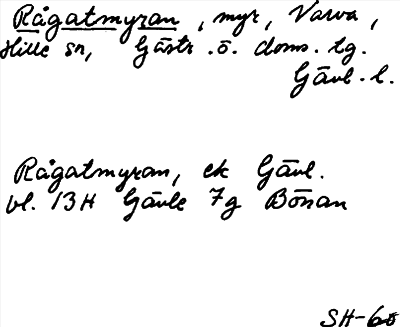 Rågatmyran, myr, Varva,
Hille sn, Gästr. ö. doms. tg.
Gävl. l.
Rågatmyran, ek Gävl.
bl. 13H Gävle 7g Bönan
SH-60